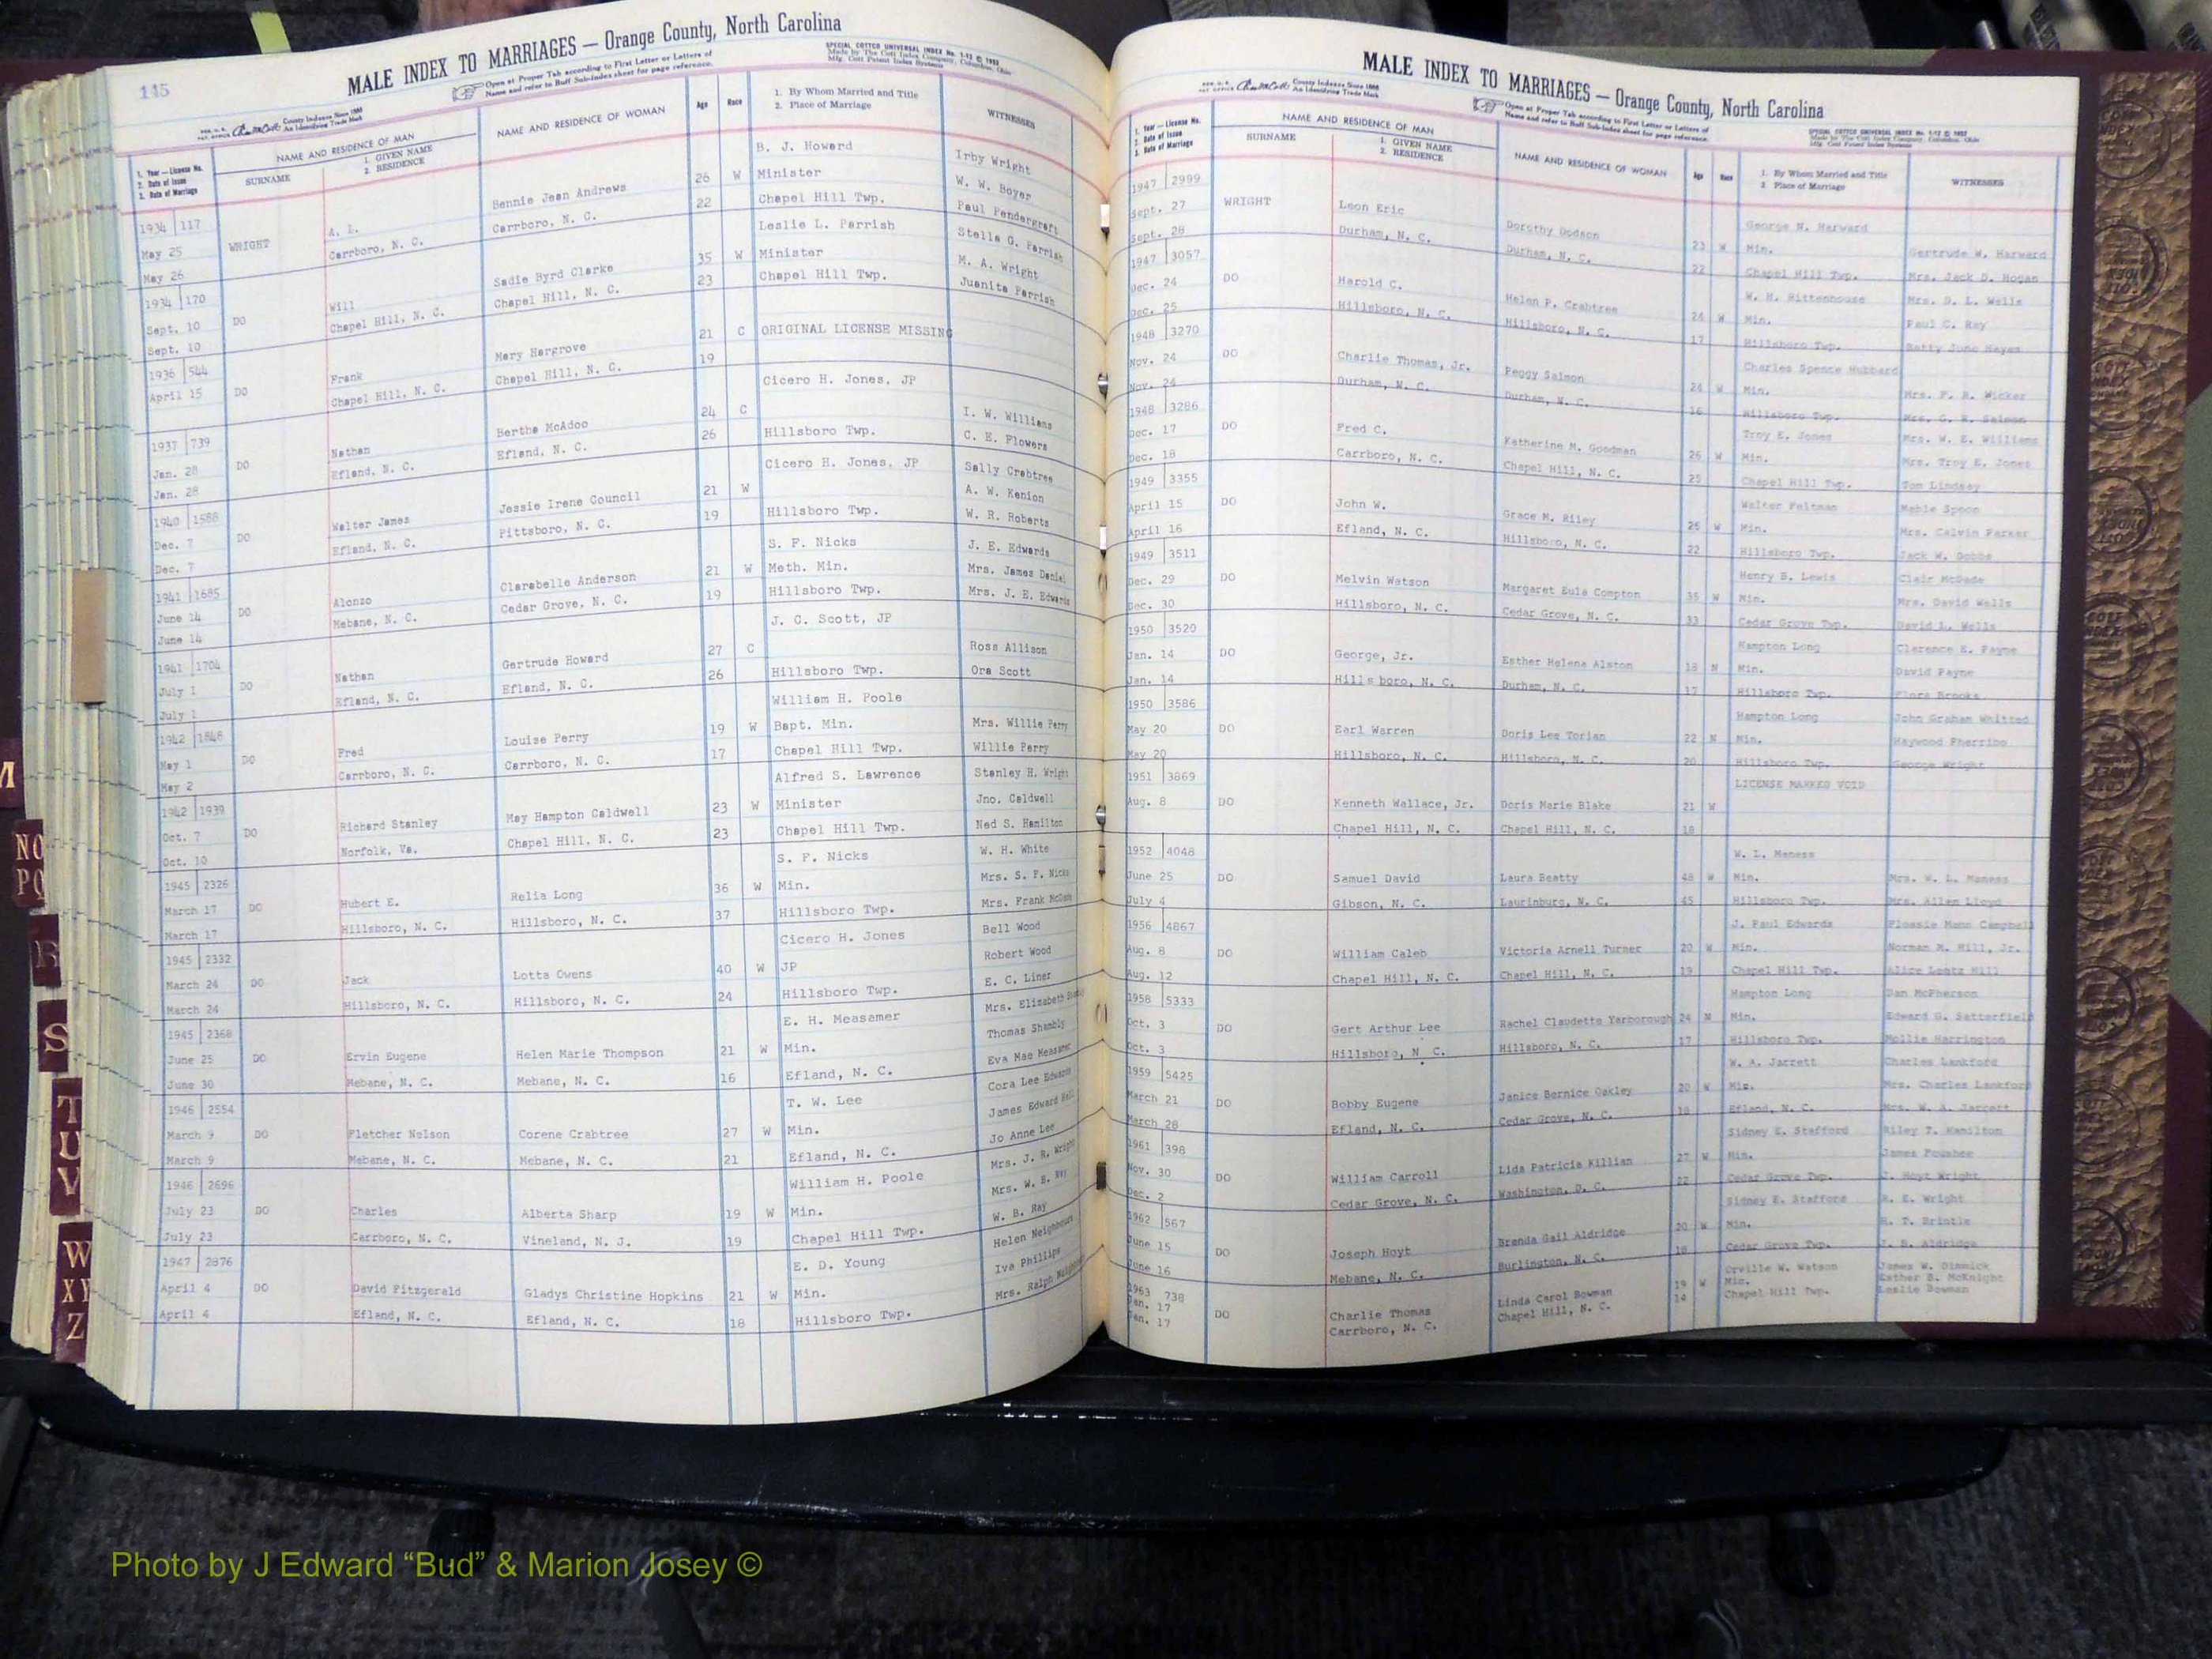 145
MALE INDEX TO MARRIAGES — Orange County, North Carolina
Open at Proper Tab according to First Letter or Letters of
Name and refer to Buff Sub-Index sheet for page reference.
SPECIAL COTTCO UNIVERSAL INDEX No. 1-12 © 1952
Made by The Cott Index Company, Columbus, Ohio
Mfg. Cott Patent Index Systems
County Indexes Since 1888
An Identifying Trade Mark
1. Year — License No.
2. Date of Issue
3. Date of Marriage
NAME AND RESIDENCE OF MAN
SURNAME
1. GIVEN NAME
2. RESIDENCE
NAME AND RESIDENCE OF WOMAN
Age
Race
1. By Whom Married and Title
2. Place of Marriage
WITNESSES
1934 117 B. J. Howard Irby Wright
May 25 WRIGHT A. L. Bennie Jean Andrews 26 W Minister W. W. Boyer
May 26 Carrboro, N. C. Carrboro, N. C. 22 Chapel Hill Twp. Paul Pendergraft
1934 170 Leslie L. Parrish Stella G. Parrish
Sept. 10 DO Will Sadie Byrd Clarke 35 W Minister M. A. Wright
Sept. 10 Chapel Hill, N. C. Chapel Hill, N. C. 23 Chapel Hill Twp. Juanita Parrish
1936 544
April 15 DO Frank Mary Hargrove 21 C ORIGINAL LICENSE MISSING
Chapel Hill, N. C. Chapel Hill, N. C. 19
1937 739 Cicero H. Jones, JP
Jan. 28 DO Nathan Bertha McAdoo 24 C I. W. Williams
Jan. 28 Efland, N. C. Efland, N. C. 26 Hillsboro Twp. C. E. Flowers
1940 1588 Cicero H. Jones, JP Sally Crabtree
Dec. 7 DO Walter James Jessie Irene Council 21 W A. W. Kenion
Dec. 7 Efland, N. C. Pittsboro, N. C. 19 Hillsboro Twp. W. R. Roberts
1941 1685 S. F. Nicks J. E. Edwards
June 14 DO Alonzo Clarabelle Anderson 21 W Meth. Min. Mrs. James Daniel
June 14 Mebane, N. C. Cedar Grove, N. C. 19 Hillsboro Twp. Mrs. J. E. Edwards
1941 1704 J. C. Scott, JP
July 1 DO Nathan Gertrude Howard 27 C Ross Allison
July 1 Efland, N. C. Efland, N. C. 26 Hillsboro Twp. Ora Scott
1942 1848 William H. Poole
May 1 DO Fred Louise Perry 19 W Bapt. Min. Mrs. Willie Perry
May 2 Carrboro, N. C. Carrboro, N. C. 17 Chapel Hill Twp. Willie Perry
1942 1939 Alfred S. Lawrence Stanley H. Wright
Oct. 7 DO Richard Stanley May Hampton Caldwell 23 W Minister Jno. Caldwell
Oct. 10 Norfolk, Va. Chapel Hill, N. C. 23 Chapel Hill Twp. Ned S. Hamilton
1945 2326 S. F. Nicks W. H. White
March 17 DO Hubert E. Relia Long 36 W Min. Mrs. S. F. Nicks
March 17 Hillsboro, N. C. Hillsboro, N. C. 37 Hillsboro Twp. Mrs. Frank
1945 2332 Cicero H. Jones Bell Wood
March 24 DO Jack Lotta Owens 40 W JP Robert Wood
March 24 Hillsboro, N. C. Hillsboro, N. C. 24 Hillsboro Twp. E. C. Liner
1945 2368 E. H. Measamer Mrs. Elizabeth
June 25 DO Ervin Eugene Helen Marie Thompson 21 W Min. Thomas Shambly
June 30 Mebane, N. C. Mebane, N. C. 16 Efland, N. C. Eva Mae Measamer
1946 2554 T. W. Lee Cora Lee Edwards
March 9 DO Fletcher Nelson Corene Crabtree 27 W Min. James Edward
March 9 Mebane, N. C. Mebane, N. C. 21 Efland, N. C. Jo Anne Lee
1946 2696 William H. Poole Mrs. J. R. Wright
July 23 DO Charles Alberta Sharp 19 W Min. Mrs. W. B. Ray
July 23 Carrboro, N. C. Vineland, N. J. 19 Chapel Hill Twp. W. B. Ray
1947 2876 E. D. Young Helen Neighbours
April 4 DO David Fitzgerald Gladys Christine Hopkins 21 W Min. Iva Phillips
April 4 Efland, N. C. Efland, N. C. 18 Hillsboro Twp. Mrs. Ralph
MALE INDEX TO MARRIAGES — Orange County, North Carolina
Open at Proper Tab according to First Letter or Letters of
Name and refer to Buff Sub-Index sheet for page reference.
SPECIAL COTTCO UNIVERSAL INDEX No. 1-12 © 1952
Made by The Cott Index Company, Columbus, Ohio
Mfg. Cott Patent Index Systems
County Indexes Since 1888
An Identifying Trade Mark
1. Year — License No.
2. Date of Issue
3. Date of Marriage
NAME AND RESIDENCE OF MAN
SURNAME
1. GIVEN NAME
2. RESIDENCE
NAME AND RESIDENCE OF WOMAN
Age
Race
1. By Whom Married and Title
2. Place of Marriage
WITNESSES
1947 2999 George N. Harward
Sept. 27 WRIGHT Leon Eric Dorothy Dodson 23 W Min. Gertrude W. Harward
Sept. 28 Durham, N. C. Durham, N. C. 22 Chapel Hill Twp. Mrs. Jack D. Hogan
1947 3057 W. H. Rittenhouse Mrs. D. L. Wells
Dec. 24 DO Harold C. Helen P. Crabtree 24 W Min. Paul C. Ray
Dec. 25 Hillsboro, N. C. Hillsboro, N. C. 17 Hillsboro Twp. Betty June Hayes
1948 3270 Charles Spence Hubbard
Nov. 24 DO Charlie Thomas, Jr. Peggy Salmon 24 W Min. Mrs. F. R. Wicker
Nov. 24 Durham, N. C. Durham, N. C. 16 Hillsboro Twp. Mrs. G. R. Salmon
1948 3286 Troy E. Jones Mrs. W. E. Williams
Dec. 17 DO Fred C. Katherine M. Goodman 26 W Min. Mrs. Troy E. Jones
Dec. 18 Carrboro, N. C. Chapel Hill, N. C. 25 Chapel Hill Twp. Tom Lindsey
1949 3355 Walter Feltman Mable Spoon
April 15 DO John W. Grace M. Riley 26 W Min. Mrs. Calvin Parker
April 16 Efland, N. C. Hillsboro, N. C. 22 Hillsboro Twp. Jack W. Dobbs
1949 3511 Henry B. Lewis Clair McDade
Dec. 29 DO Melvin Watson Margaret Eula Compton 35 W Min. Mrs. David Wells
Dec. 30 Hillsboro, N. C. Cedar Grove, N. C. 33 Cedar Grove Twp. David L. Wells
1950 3520 Hampton Long Clarence E. Payne
Jan. 14 DO George, Jr. Esther Helena Alston 18 N Min. David Payne
Jan. 14 Hills boro, N. C. Durham, N. C. 17 Hillsboro Twp. Flora Brooks
1950 3586 Hampton Long John Graham Whitted
May 20 DO Earl Warren Doris Lee Torian 22 N Min. Haywood Pherribo
May 20 Hillsboro, N. C. Hillsboro, N. C. 20 Hillsboro Twp. George Wright
1951 3869 LICENSE MARKED VOID
Aug. 8 DO Kenneth Wallace, Jr. Doris Marie Blake 21 W
Chapel Hill, N. C. Chapel Hill, N. C. 18
1952 4048 W. L. Maness
June 25 DO Samuel David Laura Beatty 48 W Min. Mrs. W. L. Maness
July 4 Gibson, N. C. Laurinburg, N. C. 45 Hillsboro Twp. Mrs. Allen Lloyd
1956 4867 J. Paul Edwards Flossie Mann Campbell
Aug. 8 DO William Caleb Victoria Arnell Turner 20 W Min. Norman M. Hill, Jr.
Aug. 12 Chapel Hill, N. C. Chapel Hill, N. C. 19 Chapel Hill Twp. Alice Hill
1958 5333 Hampton Long Dan McPherson
Oct. 3 DO Gert Arthur Lee Rachel Claudette Yarborough 24 N Min. Edward G. Satterfield
Oct. 3 Hillsboro, N C. Hillsboro, N. C. 17 Hillsboro Twp. Mollie Harrington
1959 5425 W. A. Jarrett Charles Lankford
March 21 DO Bobby Eugene Janice Bernice Oakley 20 W Min. Mrs. Charles Lankford
March 28 Efland, N. C. Cedar Grove, N. C. 18 Efland, N. C. Mrs. W. A. Jarrett
1961 398 Sidney E. Stafford Riley T. Hamilton
Nov. 30 DO William Carroll Lida Patricia Killian 27 W Min. James Poushee
Dec. 2 Cedar Grove, N. C. Washington, D. C. 22 Cedar Grove Twp. J. Hoyt Wright
1962 567 Sidney E. Stafford R. E. Wright
June 15 DO Joseph Hoyt Brenda Gail Aldridge 20 W Min. H. T. Brintle
June 16 Mebane, N. C. Burlington, N. C. 18 Cedar Grove Twp. J. B. Aldridge
1963 738 Orville W. Watson James W. Dimmick
Jan. 17 DO Charlie Thomas Linda Carol Bowman 19 W Min. Esther B. McKnight
Jan. 17 Carrboro, N. C. Chapel Hill, N. C. 14 Chapel Hill Twp. Leslie Bowman
M
NO
PQ
R
S
T
U
V
W
XY
Z
Photo by J Edward “Bud” & Marion Josey ©